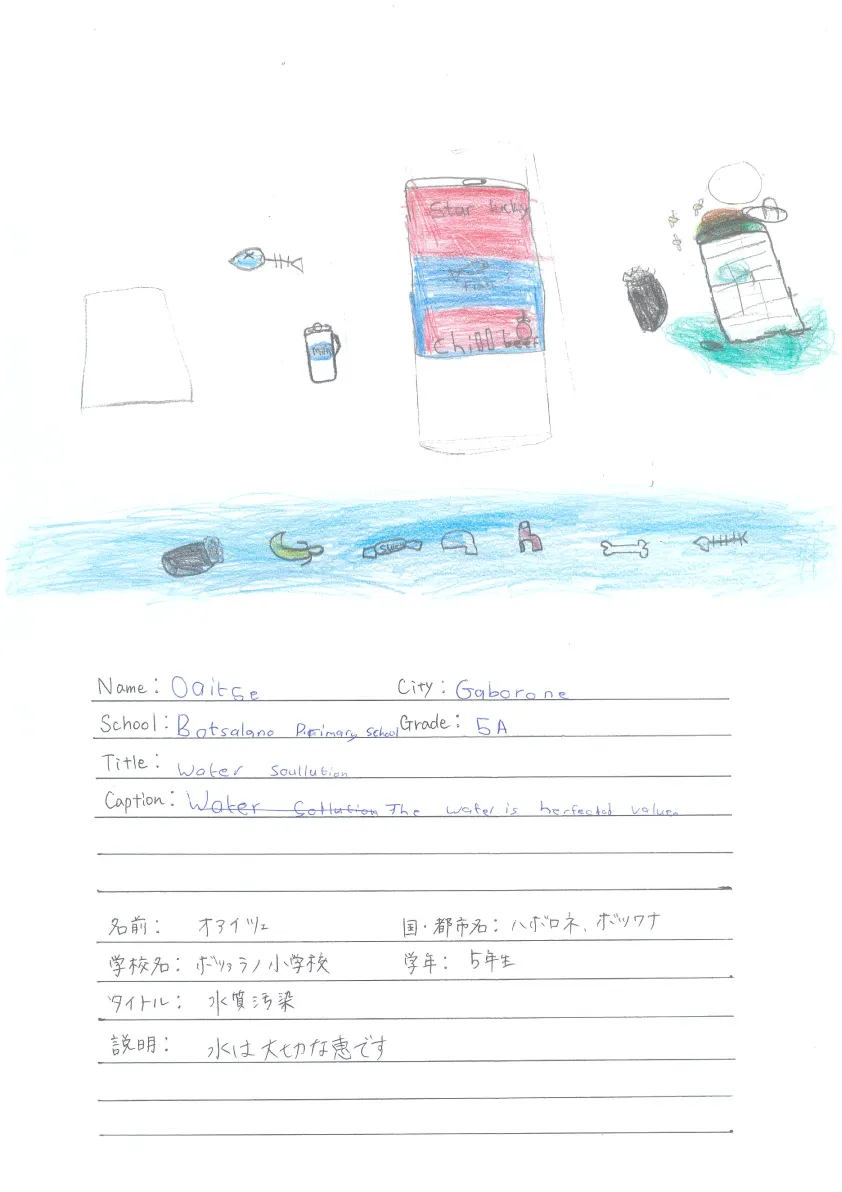 Star lucky
fish
Milk
Chill beef
Name: Oaitse City: Gaborone
School: Botsalano Primary School Grade: 5A
Title: Water soullution
Caption: Water The water is
名前: オアイツェ 国・都市名: ハボロネ、ボツワナ
学校名: ボツァラノ小学校 学年: 5年生
タイトル: 水質汚染
説明: 水は大切な恵です